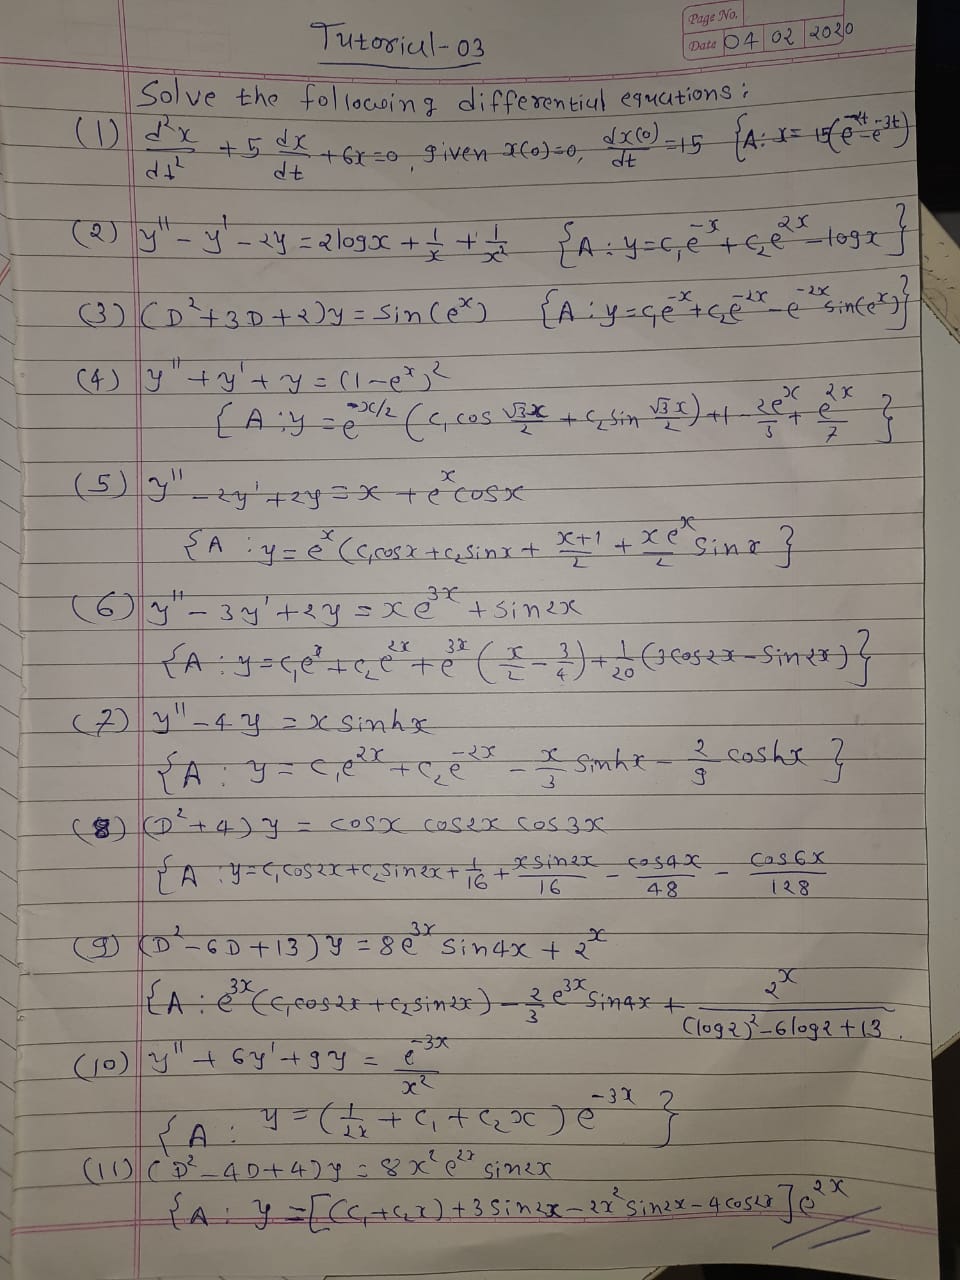 Page No.
Tutorial-03
Date 04 02 2020
Solve the following differential equations:
(1) d²x/dt² + 5 dx/dt + 6x = 0, given x(0)=0, dx(0)/dt = 15 {A: x = 15(e^-2t - e^-3t)
(2) y'' - y' - 2y = 2logx + 1/x + 1/x² {A: y = c₁e^-x + c₂e^2x - logx}
(3) (D²+3D+2)y = sin(e^x) {A: y = c₁e^-x + c₂e^-2x - e^-2x sin(e^x)}
(4) y'' + y' + y = (1-e^x)²
{A: y = e^-x/2 (c₁ cos √3x/2 + c₂ sin √3x/2) + 1 - 2e^x/3 + e^2x/7 }
(5) y'' - 2y' + 2y = x + e^x cosx
{A: y = e^x (c₁cosx + c₂sinx + x+1/2 + xe^x/2 sinx }
(6) y'' - 3y' + 2y = xe^3x + sin2x
{A: y = c₁e^x + c₂e^2x + e^3x (x/2 - 3/4) + 1/20 (3cos2x - sin2x)}
(7) y'' - 4y = x sinhx
{A: y = c₁e^2x + c₂e^-2x - x/3 sinhx - 2/9 coshx }
(8) (D²+4)y = cosx cos2x cos3x
{A: y = c₁cos2x + c₂sin2x + 1/16 + xsin2x/16 - cos4x/48 - cos6x/128
(9) (D²-6D+13)y = 8e^3x sin4x + 2^x
{A: e^3x (c₁cos2x + c₂sin2x) - 2/3 e^3x sin4x + 2^x/(log2)²-6log2+13.
(10) y'' + 6y' + 9y = e^-3x/x²
{A: y = (1/2x + c₁ + c₂x) e^-3x }
(11) (D²-4D+4)y = 8x²e^2x sin2x
{A: y = [(c₁+c₂x) + 3sin2x - 2x²sin2x - 4cos2x]e^2x